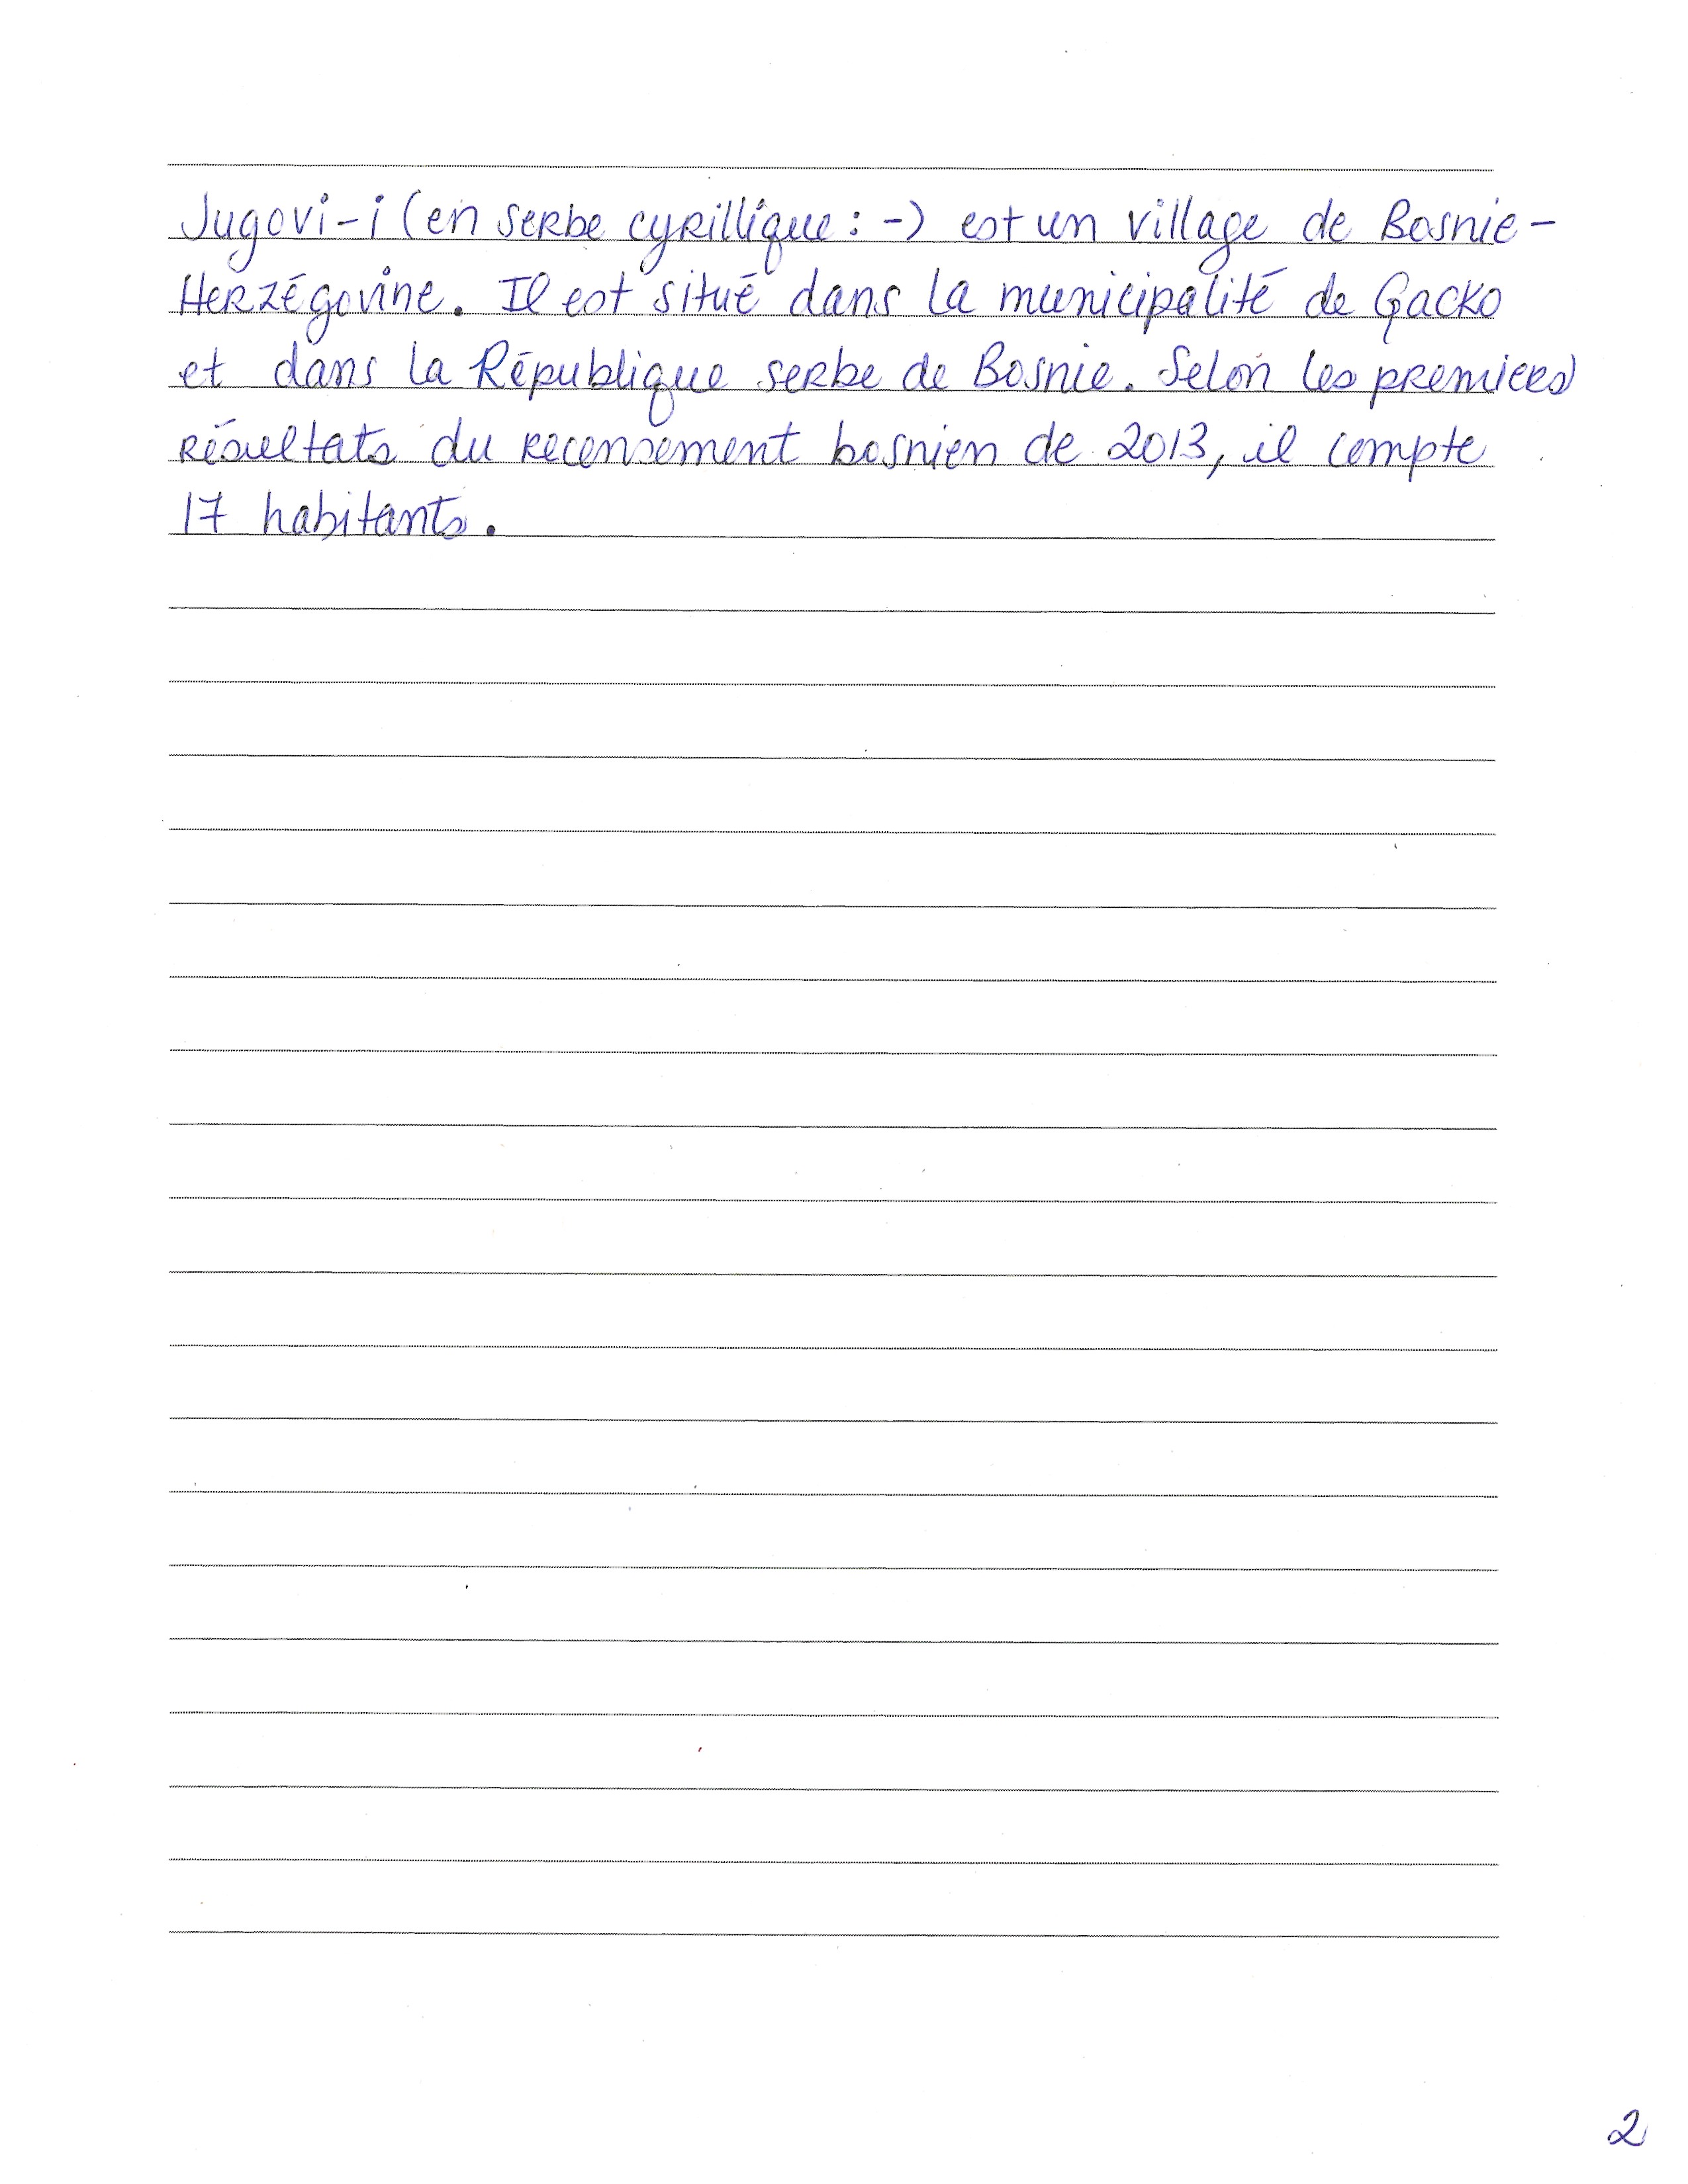 Jugovi-i (en serbe cyrillique : -) est un village de Bosnie-
Herzégovine. Il est situé dans la municipalité de Gacko
et dans la République serbe de Bosnie. Selon les premiers
résultats du recensement bosnien de 2013, il compte
17 habitants.
2